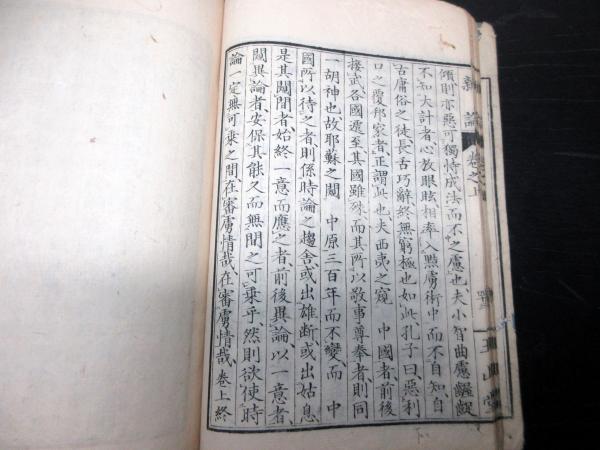 新論
卷之上
傾則亦惡可獨恃成法而不之慮也夫小智曲慮齷齪
不知大計者心教眼眩相率入黠虜術中而不自知自
古庸俗之徒長舌巧辭終無窮極也如此孔子曰惡利
口之覆邦家者正謂此也夫西夷之窺 中國者前後
接武各國遞至其國雖殊而其所以敬事尊奉者則同
一胡神也故耶蘇之闚 中原三百年而不變而 中
國所以待之者則係時論之趨舍或出雄斷或出姑息
是其闚閒者始終一意而應之者前後異論以一意者
闚異論者安保其能久而無閒之可乘乎然則欲使時
論一定無可乘之閒在審虜情哉在審虜情哉 卷上終
玉山堂